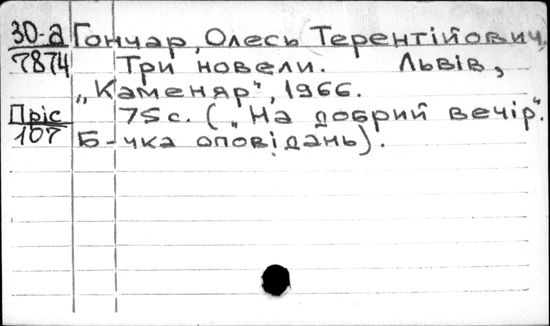 30-а Гончар, Олесь Терентійович,
7874 Три новели. Львів,
„Каменяр", 1966.
Пріс 75с. („На добрий вечір".
107 Б-чка оповідань).